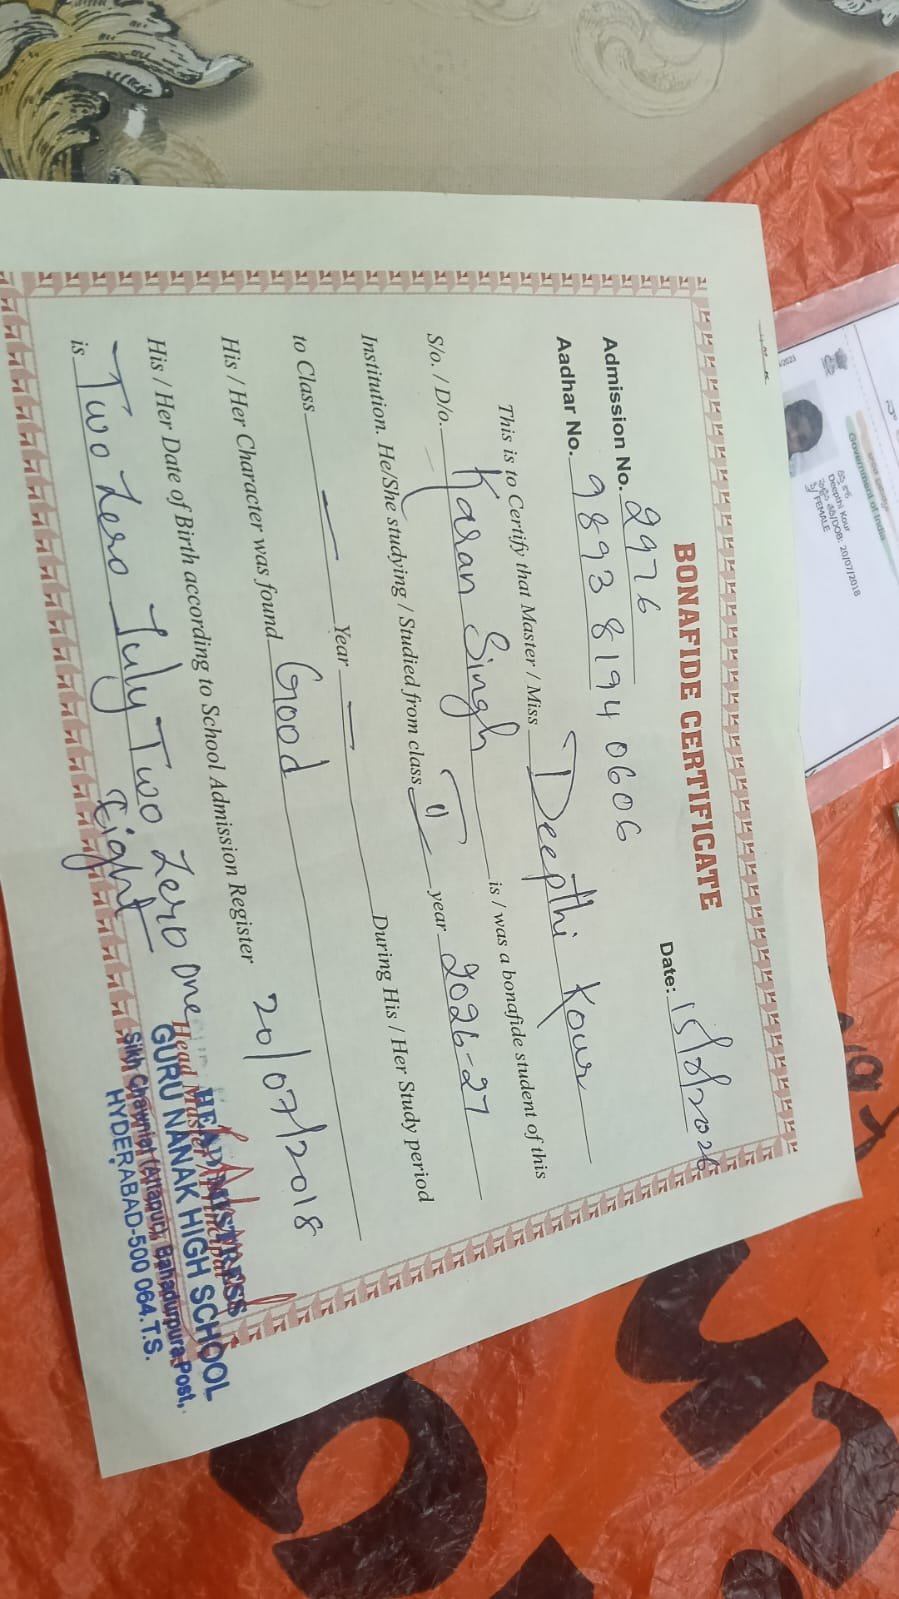 BONAFIDE CERTIFICATE
Date: 15/8/2026
Admission No. 2976
Aadhar No. 9893 8194 0606
This is to Certify that Master / Miss Deepthi Kour
S/o. / D/o. Karan Singh is / was a bonafide student of this
Institution. He/She studying / Studied from class II year 2026-27
to Class — Year — During His / Her Study period
His / Her Character was found Good
His / Her Date of Birth according to School Admission Register 20/07/2018
is Two Zero July Two Zero One Eight
Head Master
HEAD MISTRESS
GURU NANAK HIGH SCHOOL
Sikh Chawni (Attapur), Bahadurpura Post,
HYDERABAD-500 064.T.S.
Government of India
Deepthi Kour
DOB: 20/07/2018
FEMALE